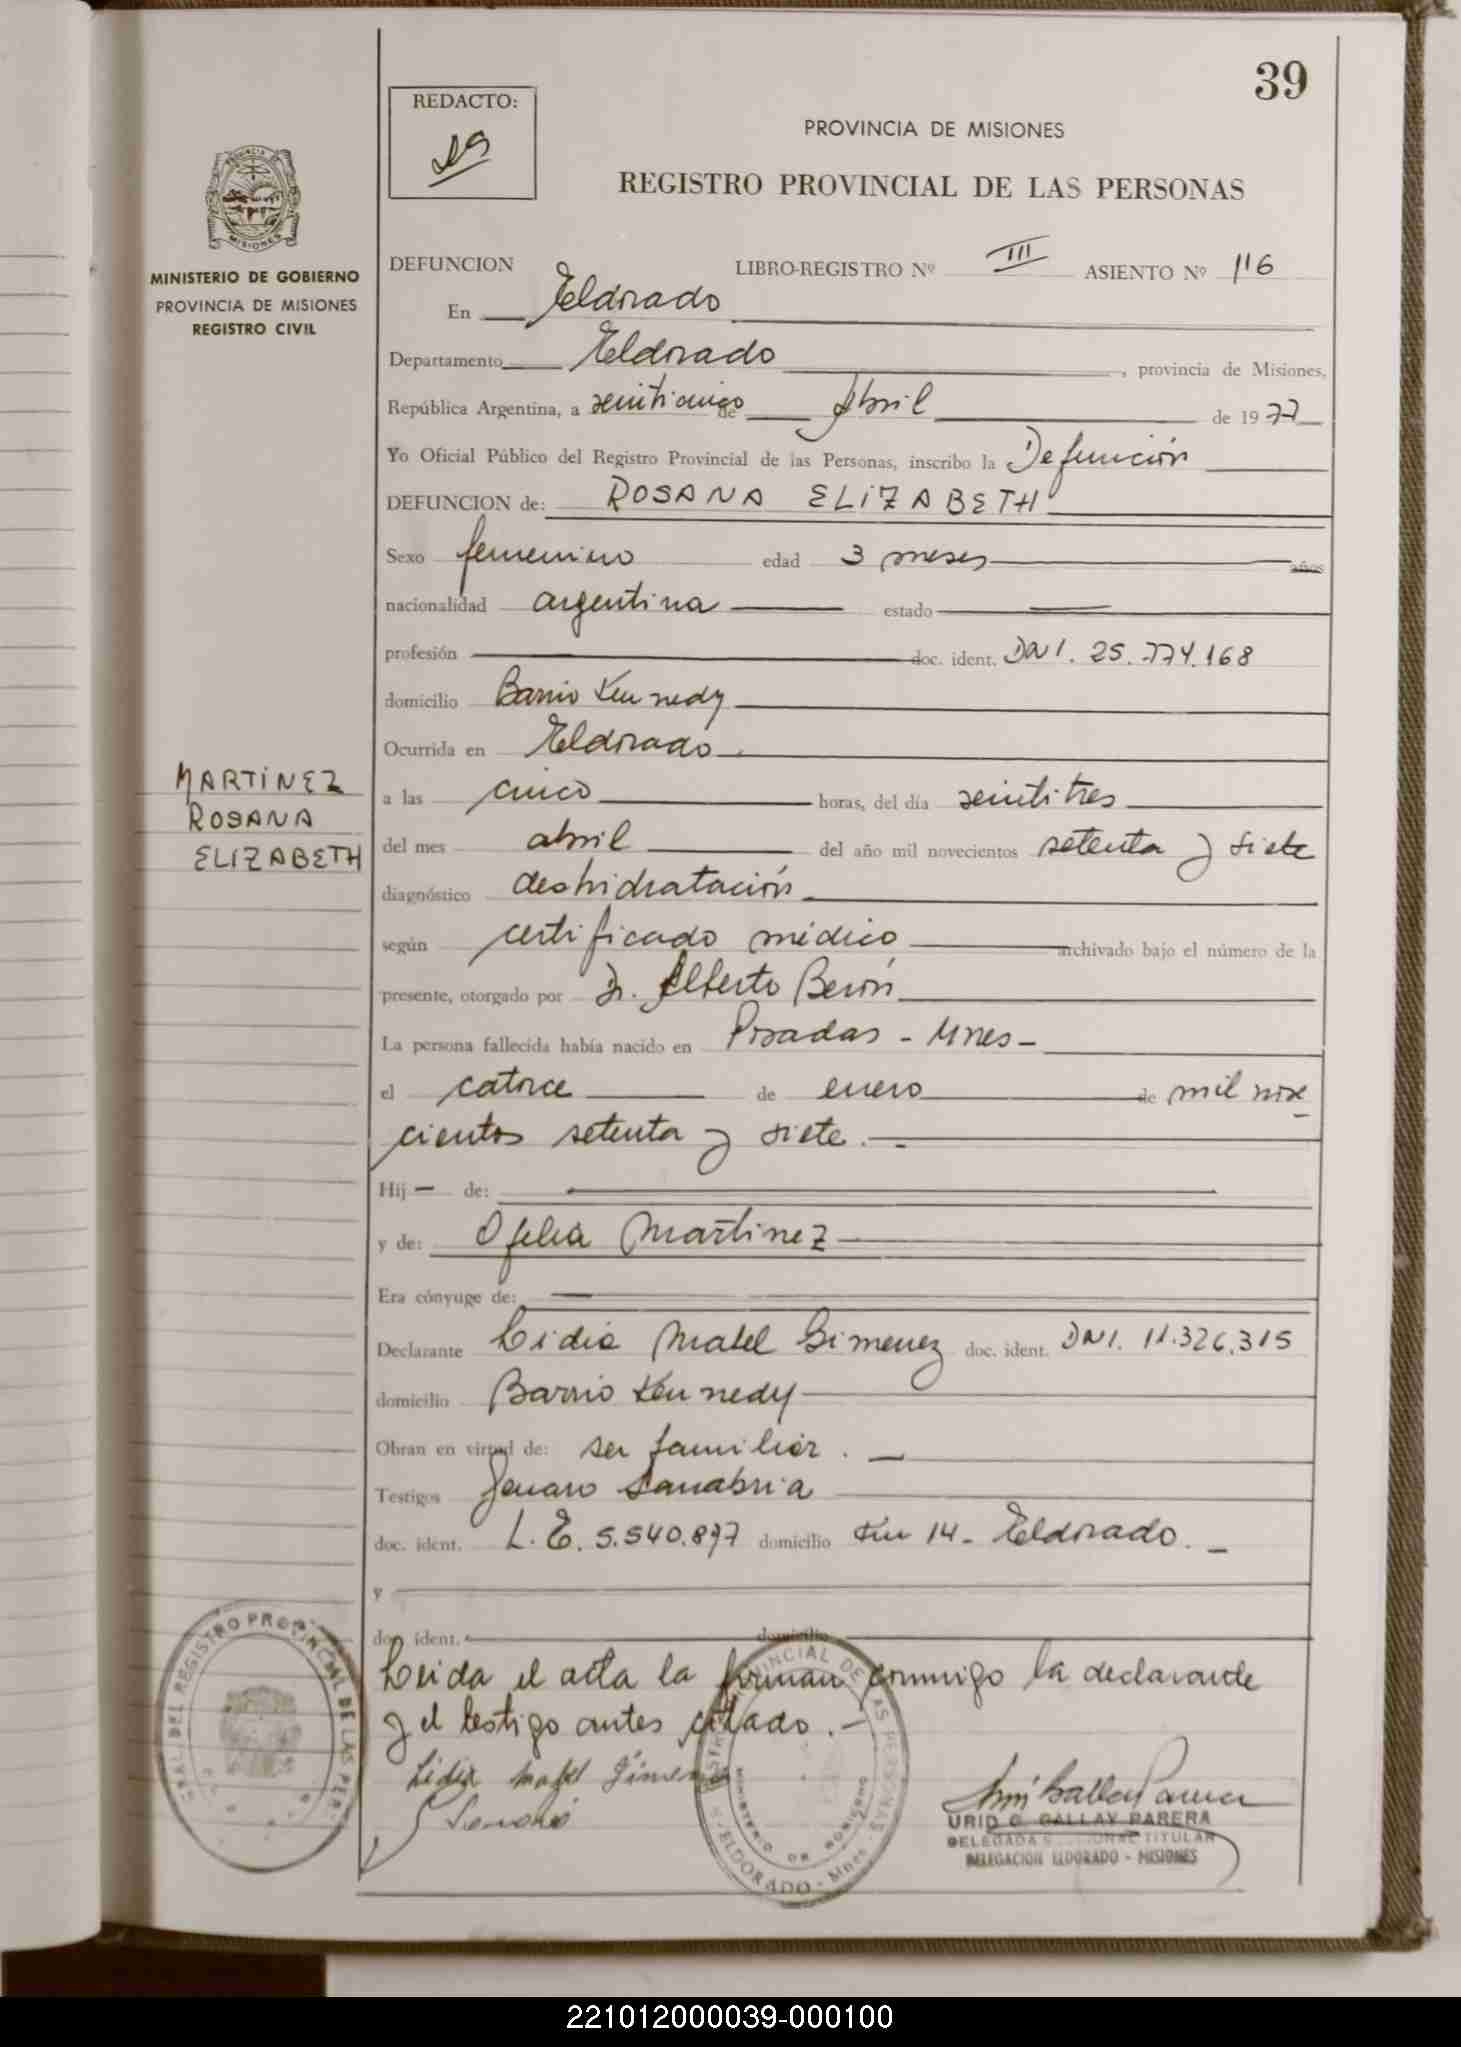 39
REDACTO:
PROVINCIA DE MISIONES
REGISTRO PROVINCIAL DE LAS PERSONAS
MINISTERIO DE GOBIERNO
PROVINCIA DE MISIONES
REGISTRO CIVIL
DEFUNCION LIBRO-REGISTRO Nº III ASIENTO Nº 116
En Eldorado
Departamento Eldorado, provincia de Misiones,
República Argentina, a veinticinco de Abril de 1977
Yo Oficial Público del Registro Provincial de las Personas, inscribo la Defunción
DEFUNCION de: ROSANA ELIZABETH
Sexo femenino edad 3 meses años
nacionalidad argentina estado
profesión doc. ident. DNI. 25.774.168
domicilio Barrio Kennedy
Ocurrida en Eldorado
MARTINEZ
ROSANA
ELIZABETH
a las cinco horas, del día veintitres
del mes abril del año mil novecientos setenta y siete
diagnóstico deshidratación
según certificado médico archivado bajo el número de la
presente, otorgado por Dr. Alberto Berón
La persona fallecida había nacido en Posadas - Mnes -
el catorce de enero de mil nove
cientos setenta y siete. -
Hij - de:
y de: Ofelia Martinez
Era cónyuge de:
Declarante Lidia Mabel Gimenez doc. ident. DNI. 11.326.315
domicilio Barrio Kennedy
Obran en virtud de: ser familiar. -
Testigos Genaro Sanabria
doc. ident. L.E. 5.540.897 domicilio Km 14 - Eldorado. -
y
doc. ident. domicilio
Leida el acta la firman conmigo la declarante
y el testigo antes citado. -
Lidia Mabel Gimenez
GRAL DEL REGISTRO PROVINCIAL DE LAS PER
PROVINCIAL DE LAS PERSONAS
MINISTERIO DE GOBIERNO
ELDORADO - Mnes -
URID G. GALLAY PARERA
DELEGADA TITULAR
DELEGACION ELDORADO - MISIONES
221012000039-000100